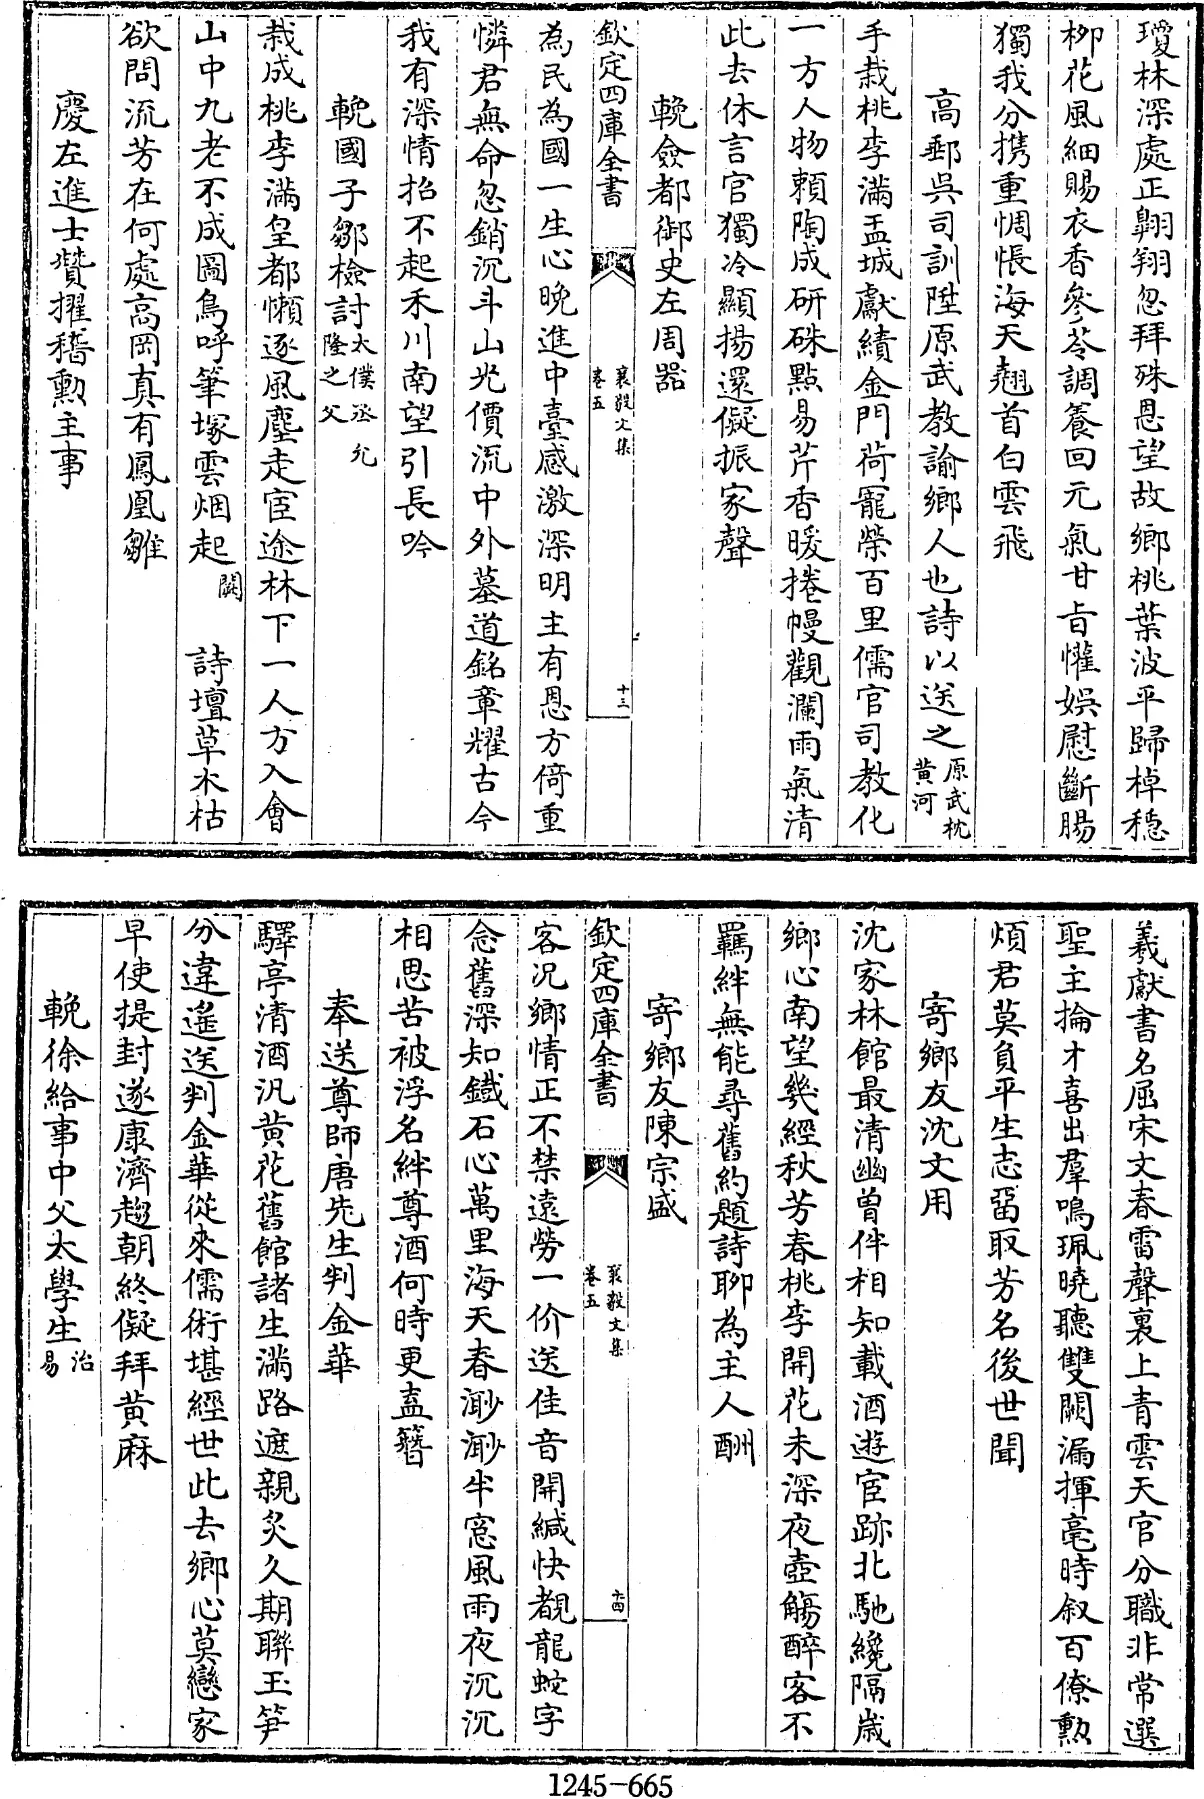 瓊林深處正翺翔忽拜殊恩望故鄉桃葉波平歸棹穩
柳花風細賜衣香參苓調養回元氣甘旨懽娛慰斷腸
獨我分攜重惆悵海天翹首白雲飛
高郵吳司訓陞原武教諭鄉人也詩以送之原武枕黄河
手栽桃李滿盂城獻績金門荷寵榮百里儒官司教化
一方人物頼陶成研硃點易芹香暖捲幔觀瀾雨氣清
此去休言官獨冷顯揚還儗振家聲
輓僉都御史左周器
欽定四庫全書
襄毅文集
卷五
十三
為民為國一生心晩進中臺感激深明主有恩方倚重
憐君無命忽銷沉斗山光價流中外墓道銘章耀古今
我有深情招不起禾川南望引長吟
輓國子鄒檢討太僕丞允隆之父
栽成桃李滿皇都懶逐風塵走宦途林下一人方入會
山中九老不成圖鳥呼筆塚雲烟起闕詩壇草木枯
欲問流芳在何處高岡真有鳳凰雛
慶左進士贊擢稽勲主事
羲獻書名屈宋文春雷聲裏上青雲天官分職非常選
聖主掄才喜出羣鳴珮曉聽雙闕漏揮毫時叙百僚勲
煩君莫負平生志畱取芳名後世聞
寄鄉友沈文用
沈家林館最清幽曾伴相知載酒遊宦跡北馳纔隔歲
鄉心南望幾經秋芳春桃李開花未深夜壺觴醉客不
羈絆無能尋舊約題詩聊為主人酬
寄鄉友陳宗盛
欽定四庫全書
襄毅文集
卷五
十四
客況鄉情正不禁遠勞一价送佳音開緘快覩龍蛇字
念舊深知鐵石心萬里海天春渺渺半窓風雨夜沉沉
相思苦被浮名絆尊酒何時更盍簪
奉送尊師唐先生判金華
驛亭清酒汎黄花舊館諸生滿路遮親炙久期聯玉笋
分違遙送判金華從來儒術堪經世此去鄉心莫戀家
早使提封遂康濟趨朝終儗拜黄麻
輓徐給事中父太學生治易
1245-665